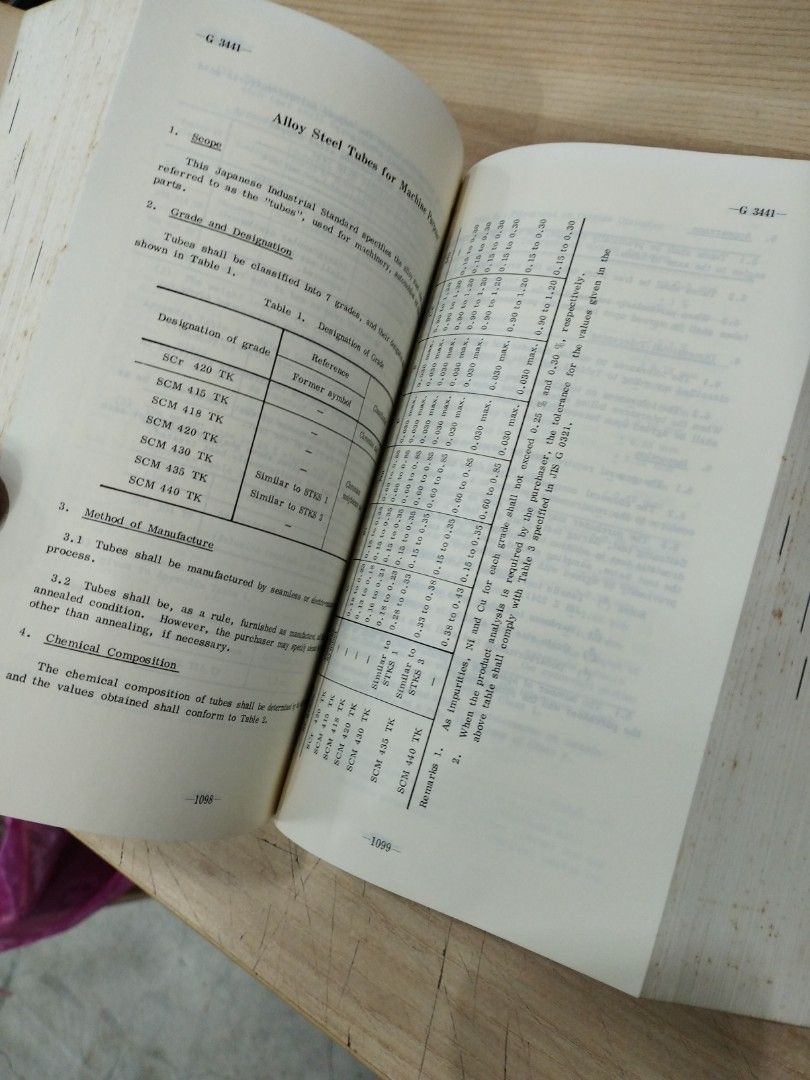 —G 3441—
Alloy Steel Tubes for Machine Purposes
1. Scope
This Japanese Industrial Standard specifies the alloy steel
referred to as the "tubes", used for machinery, automobiles
parts.
2. Grade and Designation
Tubes shall be classified into 7 grades, and their
shown in Table 1.
Table 1. Designation of Grade
Designation of grade
Reference
Former symbol
SCr 420 TK —
SCM 415 TK —
SCM 418 TK —
SCM 420 TK —
SCM 430 TK Similar to STKS 1
SCM 435 TK Similar to STKS 3
SCM 440 TK —
3. Method of Manufacture
3.1 Tubes shall be manufactured by seamless or
process.
3.2 Tubes shall be, as a rule, furnished as
annealed condition. However, the purchaser may specify
other than annealing, if necessary.
4. Chemical Composition
The chemical composition of tubes shall be determined
and the values obtained shall conform to Table 2.
—1098—
—G 3441—
SCr 420 TK
SCM 415 TK —
SCM 418 TK —
SCM 420 TK — 0.18 to 0.23 0.15 to 0.35 0.60 to 0.85 0.030 max. 0.030 max. 0.90 to 1.20 0.15 to 0.30
SCM 430 TK Similar to STKS 1 0.28 to 0.33 0.15 to 0.35 0.60 to 0.85 0.030 max. 0.030 max. 0.90 to 1.20 0.15 to 0.30
SCM 435 TK Similar to STKS 3 0.33 to 0.38 0.15 to 0.35 0.60 to 0.85 0.030 max. 0.030 max. 0.90 to 1.20 0.15 to 0.30
SCM 440 TK — 0.38 to 0.43 0.15 to 0.35 0.60 to 0.85 0.030 max. 0.030 max. 0.90 to 1.20 0.15 to 0.30
Remarks 1. As impurities, Ni and Cu for each grade shall not exceed 0.25 % and 0.30 %, respectively.
2. When the product analysis is required by the purchaser, the tolerance for the values given in the
above table shall comply with Table 3 specified in JIS G 0321.
—1099—